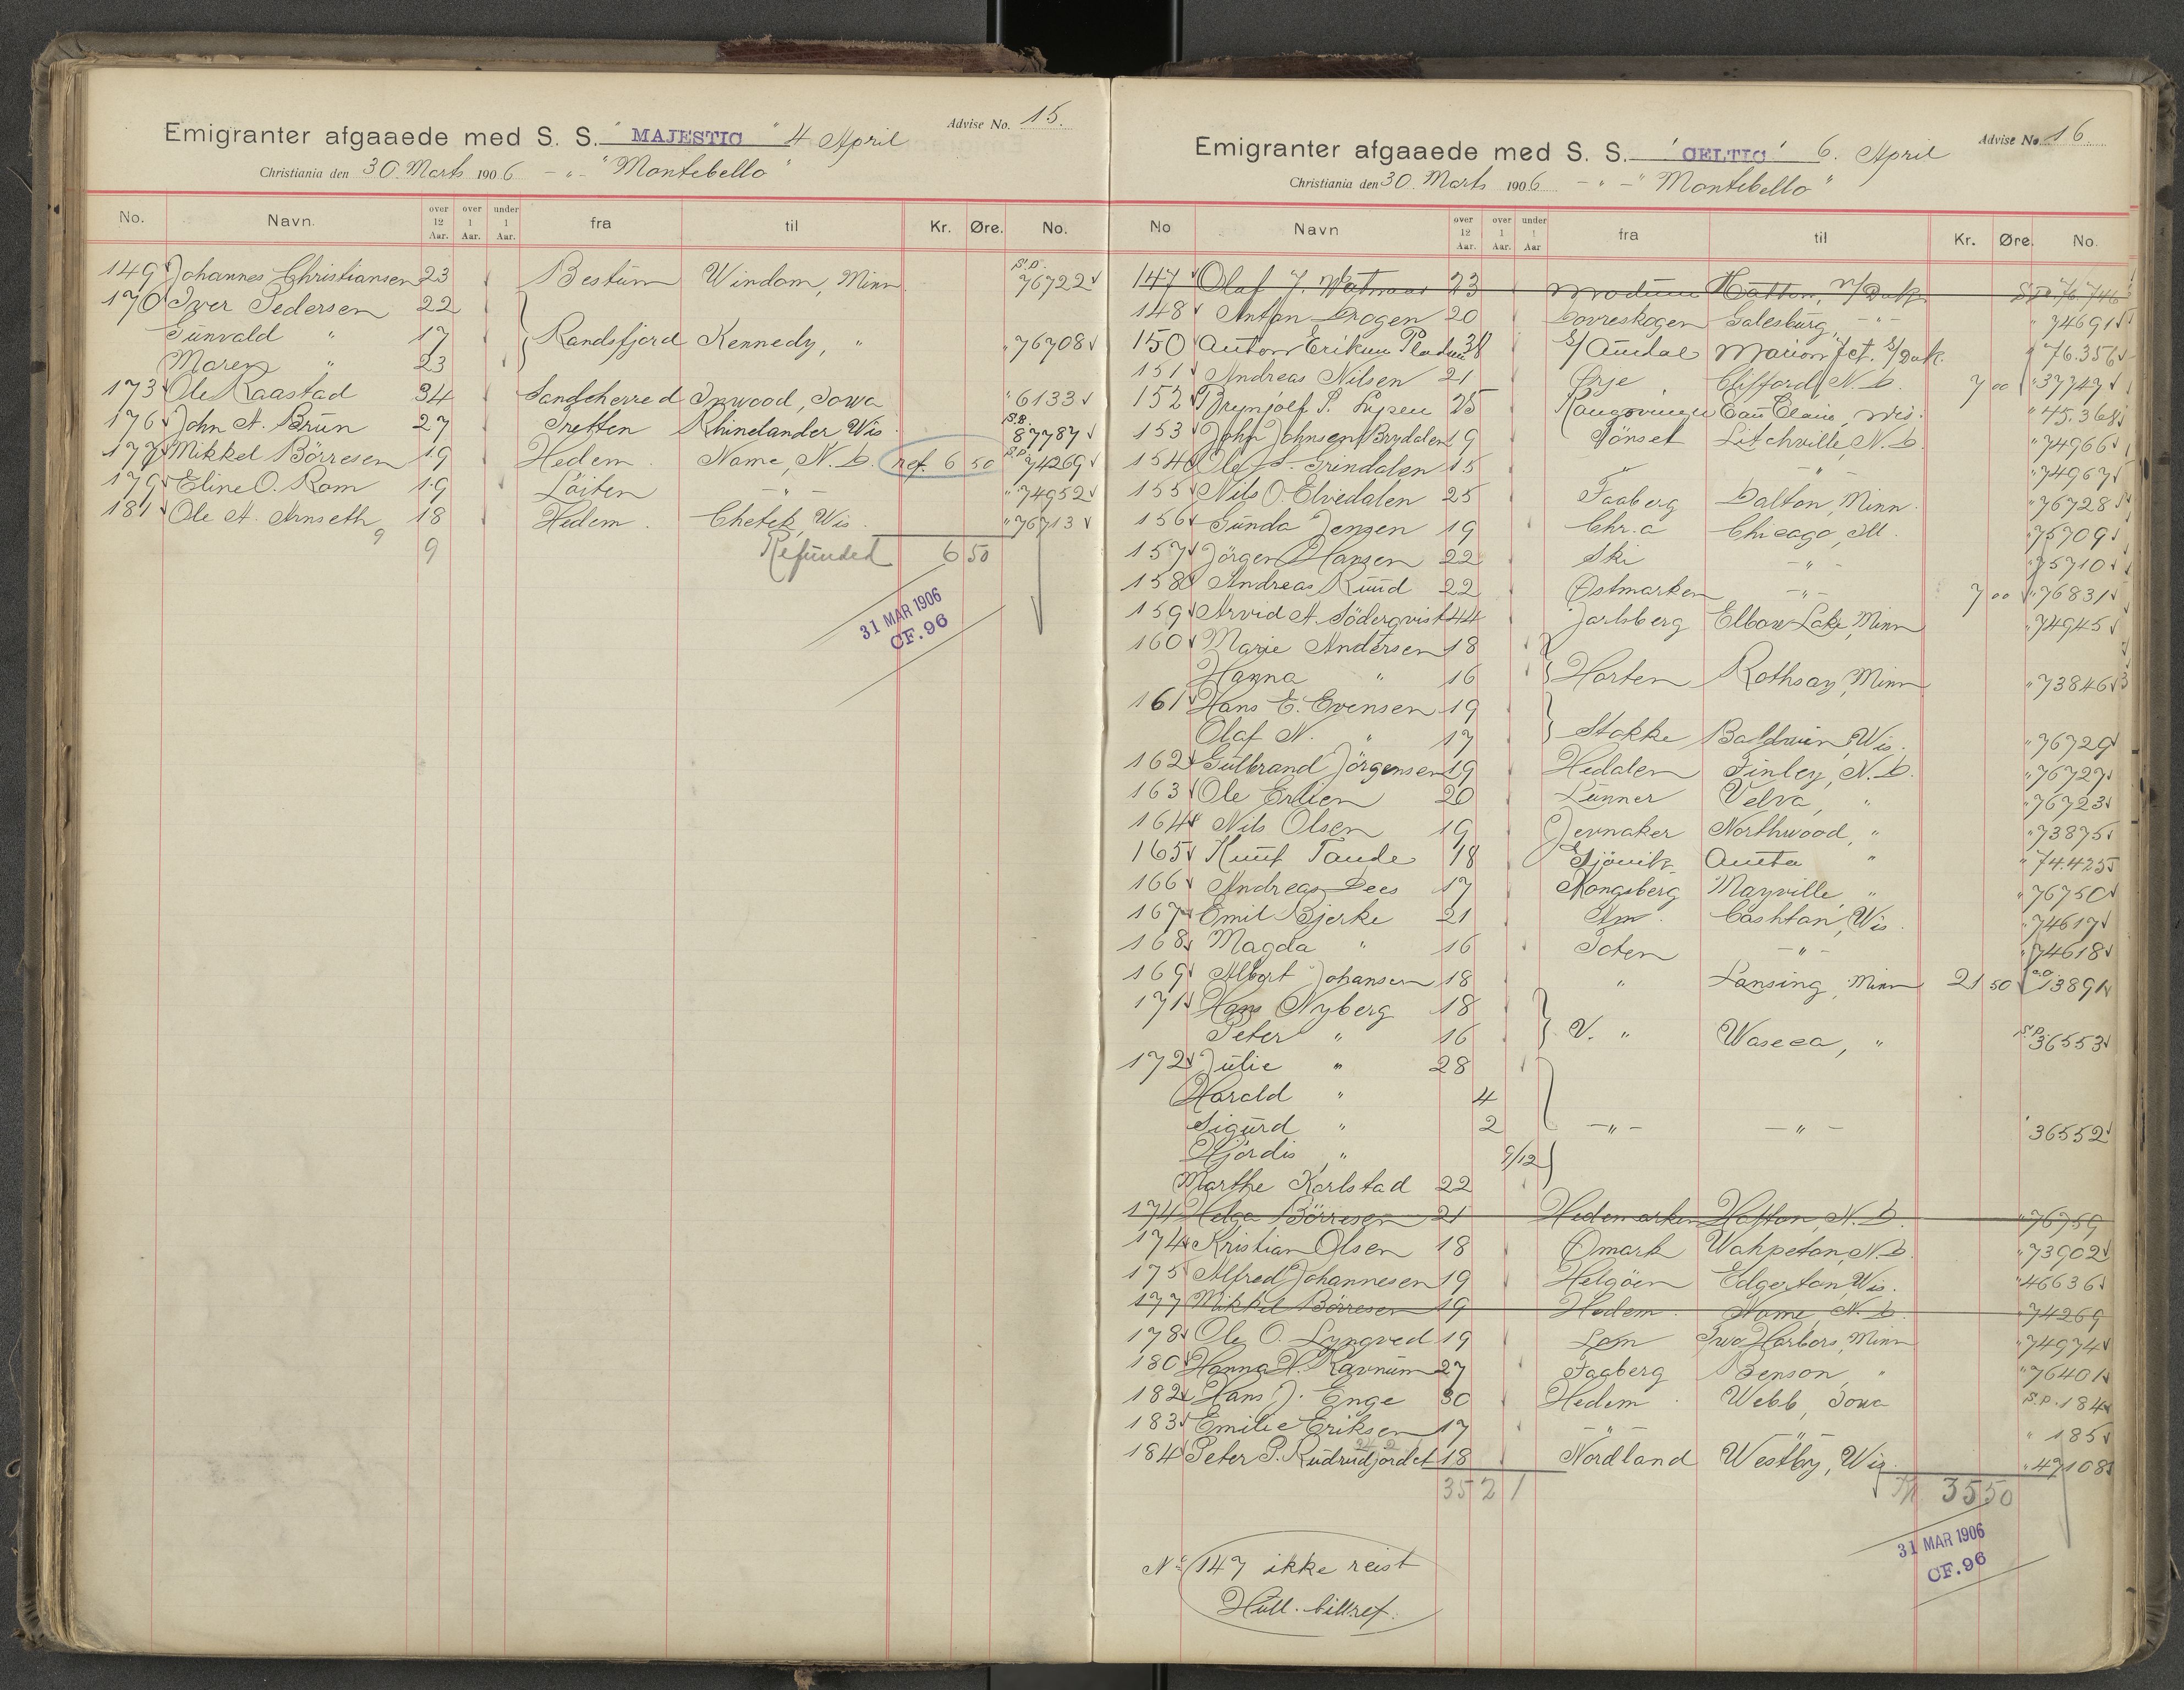 Advise No. 15.
Emigranter afgaaede med S. S. "MAJESTIC" 4 April
Christiania den 30. Marts 1906 - " - "Montebello"
No. Navn. over 12 Aar. over 1 Aar. under 1 Aar. fra til Kr. Øre. No.
149 Johannes Christiansen 23 Bestum Windom, Minn S.P. 76722
170 Iver Pedersen 22
Gunvald " 17 Randsfjord Kennedy, " " 76708
Maren " 23
173 Ole Raastad 34 Sandeherred Inwood, Iowa " 6133
176 John A. Brun 27 Tretten Rhinelander Wis. S.B. 87787
177 Mikkel Börresen 19 Hedem. Nome, N.D. ref. 6 50 S.P. 74269
179 Eline O. Rom 19 Löiten - " - " 74952
181 Ole A. Arnseth 18 Hedem. Chetek, Wis. " 76713
9 9 Refunded 6 50
31 MAR 1906
CF. 96
Advise No. 16.
Emigranter afgaaede med S. S. "CELTIC" 6. April
Christiania den 30. Marts 1906 - " - "Montebello"
No Navn over 12 Aar. over 1 Aar. under 1 Aar fra til Kr. Øre. No.
147 Olaf J. 23 Modum Hatton, N/Dak. S.P. 76.746
148 Anton Drogen 20 Dovreskogen Galesburg, - " - " 74691
150 Anton Eriksen 38 S/Aurdal Marion Jct. S/Dak. " 76.356
151 Andreas Nilsen 21 Ørje Clifford, N.D. 7 00 " 37747
152 Brynjolf P. 25 Kongsvinger Eau Claire, Wis. " 45.368
153 John Johnsen Brydalen 19 Tönset Litchville, N.D. " 74966
154 Ole J. Grindalen 15 " - " - " 74967
155 Nils O. Elvedalen 25 Faaberg Dalton, Minn. " 76728
156 Gunda Jensen 19 Chr.a Chicago, Ill. " 75709
157 Jörgen Hansen 22 Ski - " - " 75710
158 Andreas Ruud 22 Østmarken - " - 7 00 " 76831
159 Arvid A. Söderqvist 44 Jarlsberg Elbow Lake, Minn " 74945
160 Marie Andersen 18
Hanna " 16 Horten Rothsay, Minn " 73846
161 Hans E. Evensen 19
Olaf N. " 17 Stokke Baldwin, Wis. " 76729
162 Gulbrand Jörgensen 19 Hedalen Finley, N.D. " 76727
163 Ole Erlien 20 Lunner Velva, " " 76723
164 Nils Olsen 19 Jevnaker Northwood, " " 73875
165 Knut Tande 18 Gjövik Aneta " " 74.425
166 Andreas Dees 17 Kongsberg Mayville, " " 76750
167 Emil Bjerke 21 Am. Cashton, Wis. " 74617
168 Magda " 16 Toten - " - " 74618
169 Albert Johansen 18 " Lansing, Minn 21 50 13891
171 Hans Nyberg 18
Peter " 16 V. " Waseca, " S.P. 36553
172 Julie " 28
Harald " 4
Sigurd " 2 - " - - " - " 36552
Hjördis " 9/12
Marthe Karlstad 22
174 Helga Börresen 21 Hedemarken Hatton, N.D. " 76759
174 Kristian Olsen 18 Ømark Wahpeton, N.D. " 73902
175 Alfred Johannesen 19 Helgöen Edgerton, Wis. " 46636
177 Mikkel Börresen 19 Hedem. Nome, N.D. " 74269
178 Ole O. Lyngved 19 Lom Two Harbors, Minn " 74974
180 Hanna H. Ravnum 27 Faaberg Benson, " " 76401
182 Hans J. Enge 30 Hedem. Webb, Iowa S.P. 184
183 Emilie Eriksen 17 - " - - " - " 185
184 Peter P. Rudrudjordet 18 Nordland Westby, Wis. " 47108
35 2 1 35 50
31 MAR 1906
CF. 96
No 147 ikke reist
Hull. billref.